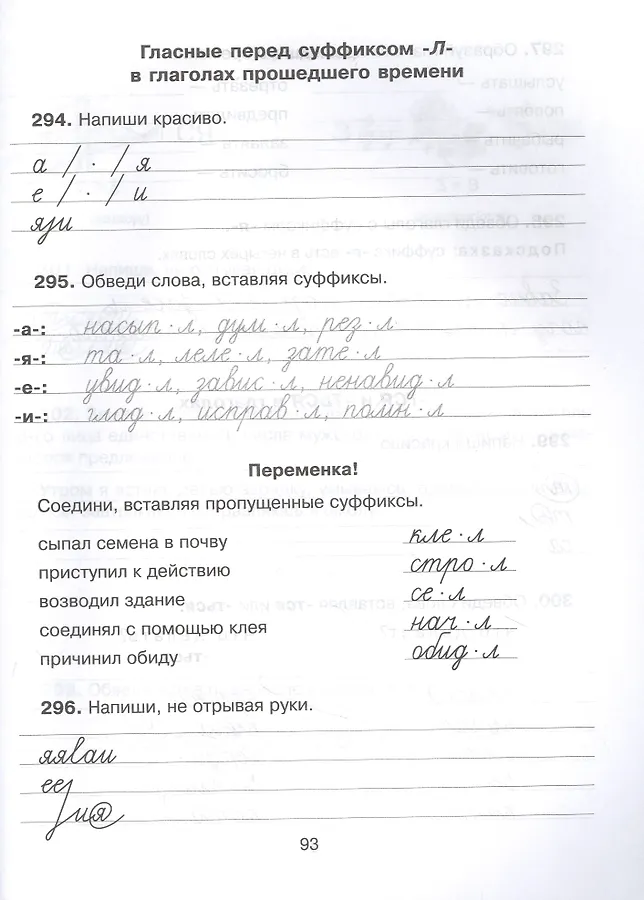 Гласные перед суффиксом -Л-
в глаголах прошедшего времени
294. Напиши красиво.
а / · / я
е / · / и
язи
295. Обведи слова, вставляя суффиксы.
-а-: насып · л, дум · л, рез · л
-я-: та · л, леле · л, зате · л
-е-: увид · л, завис · л, ненавид · л
-и-: глад · л, исправ · л, помн · л
Переменка!
Соедини, вставляя пропущенные суффиксы.
сыпал семена в почву кле · л
приступил к действию стро · л
возводил здание се · л
соединял с помощью клея нач · л
причинил обиду обид · л
296. Напиши, не отрывая руки.
93